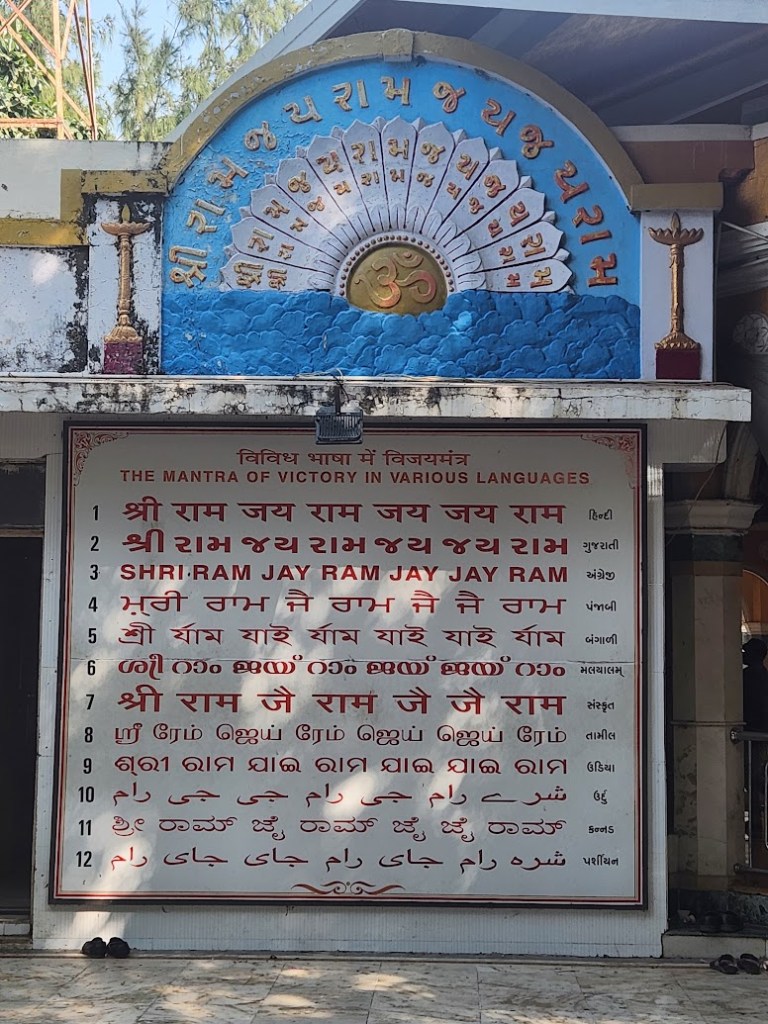 શ્રી રામ જય રામ જય જય રામ
શ્રી રામ જય રામ જય જય રામ
શ્રી રામ જય રામ જય જય રામ
ૐ
विविध भाषा में विजयमंत्र
THE MANTRA OF VICTORY IN VARIOUS LANGUAGES
1 श्री राम जय राम जय जय राम હિન્દી
2 શ્રી રામ જય રામ જય જય રામ ગુજરાતી
3 SHRI RAM JAY RAM JAY JAY RAM અંગ્રેજી
4 ਸ਼੍ਰੀ ਰਾਮ ਜੈ ਰਾਮ ਜੈ ਜੈ ਰਾਮ પંજાબી
5 শ্রী র্যাম যাই র্যাম যাই যাই র্যাম બંગાળી
6 ശ്രീ റാം ജയ് റാം ജയ് ജയ് റാം મલયાલમ્
7 श्री राम जै राम जै जै राम સંસ્કૃત
8 ஸ்ரீ ரேம் ஜெய் ரேம் ஜெய் ஜெய் ரேம் તામીલ
9 ଶ୍ରୀ ରାମ ଯାଇ ରାମ ଯାଇ ଯାଇ ରାମ ઉડિયા
10 شرے رام جی رام جی جی رام ઉર્દુ
11 ಶ್ರೀ ರಾಮ್ ಜೈ ರಾಮ್ ಜೈ ಜೈ ರಾಮ್ કન્નડ
12 شره رام جای رام جای جای رام પર્શીયન